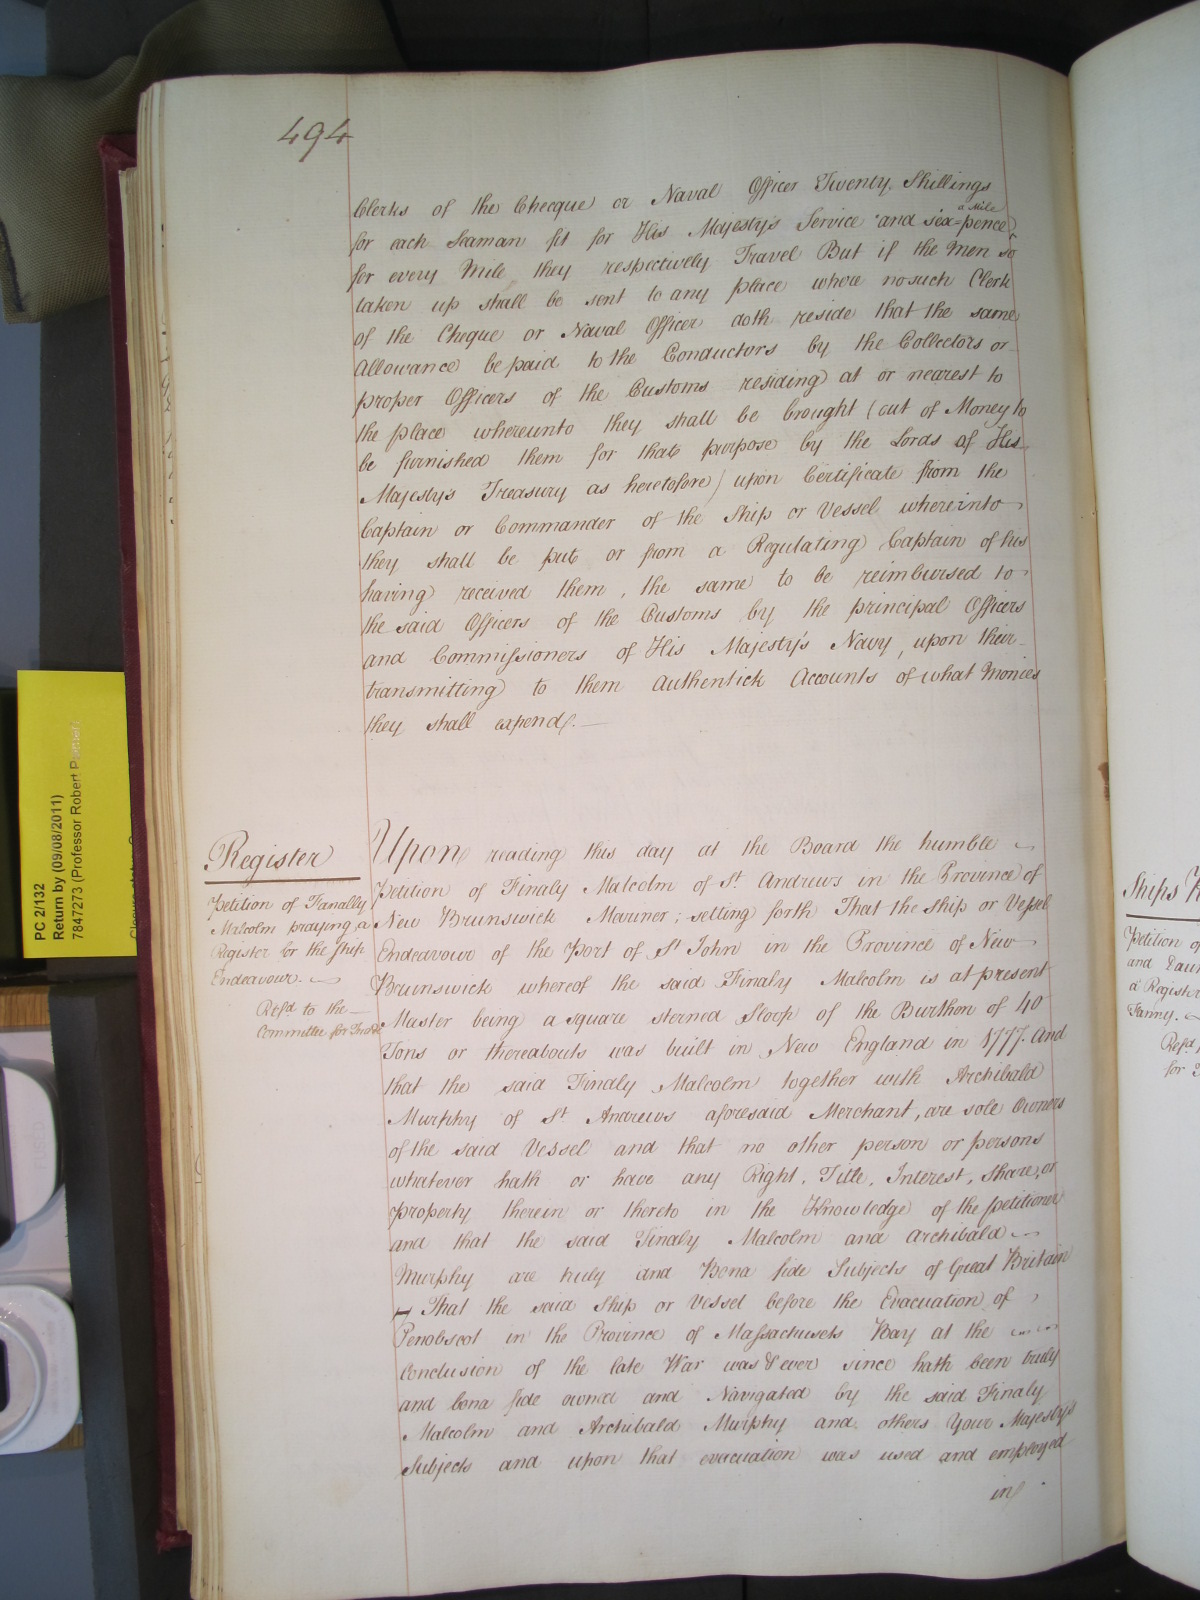 494
Clerks of the Checque or Naval Officer Twenty Shillings
for each Seaman fit for His Majesty's Service and six=pence a Mile
for every Mile they respectively Travel But if the Men so
taken up shall be sent to any place where no such Clerk
of the Cheque or Naval Officer doth reside that the same
Allowance be paid to the Conductors by the Collectors or
proper Officers of the Customs residing at or nearest to
the place whereunto they shall be brought (out of Money to
be furnished them for that purpose by the Lords of His
Majesty's Treasury as heretofore) upon Certificate from the
Captain or Commander of the Ship or Vessel whereinto
they shall be put or from a Regulating Captain of his
having received them, the same to be reimbursed to
the said Officers of the Customs by the principal Officers
and Commissioners of His Majesty's Navy, upon their
transmitting to them Authentick Accounts of what Monies
they shall expend.
Register
Petition of Fanally
Malcolm praying a
Register for the Ship
Endeavour.
Refd to the
Committee for Trade
Upon reading this day at the Board the humble
Petition of Finaly Malcolm of St. Andrews in the Province of
New Brunswick Mariner; setting forth That the Ship or Vessel
Endeavour of the Port of St John in the Province of New
Brunswick whereof the said Finaly Malcolm is at present
Master being a square sterned Sloop of the Burthon of 40
Tons or thereabouts was built in New England in 1777. And
that the said Finaly Malcolm together with Archibald
Murphy of St Andrews aforesaid Merchant, are sole Owners
of the said Vessel and that no other person or persons
whatever hath or have any Right, Title, Interest, Share, or
property therein or thereto in the Knowledge of the petitioner
and that the said Finaly Malcolm and Archibald
Murphy are truly and Bona fide Subjects of Great Britain
That the said Ship or Vessel before the Evacuation of
Penobscot in the Province of Massachusets Bay at the
Conclusion of the late War was & ever since hath been truly
and bona fide owned and Navigated by the said Finaly
Malcolm and Archibald Murphy and others Your Majesty's
Subjects and upon that evacuation was used and employed
in
PC 2/132
Return by (09/08/2011)
7847273 (Professor Robert
Ships
Petition of
and
a Register
Fanny.
Refd
for